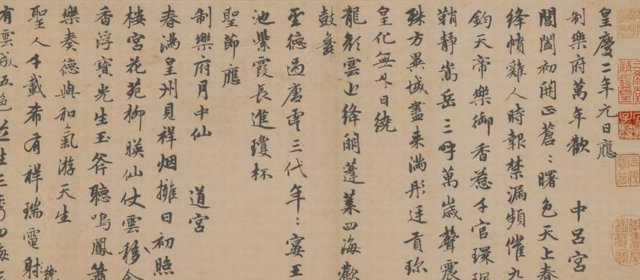 皇慶二年元日應
制樂府萬年歡　中呂宮
閶闔初開正蒼蒼曙色天上春
絳幘雞人時報禁漏頻催九
鈞天帝樂御香惹千官環珮
鞘靜嵩岳三呼萬歲聲震
殊方異域盡來滿彤廷貢珎
皇化無日繞
龍顏雲上絳闕蓬萊四海歡
鼓舞
至德過唐虞三代年年宴王
池紫霞長進瓊杯
聖節應
制樂府月中仙　道宮
春滿皇州見祥烟擁日初照
樓宮花苑柳暎仙仗雲移金
香浮寶光生玉斧聽鳴鳳簫
樂奏德與和氣游天生
聖人千載希有祥瑞電
有雲成五色